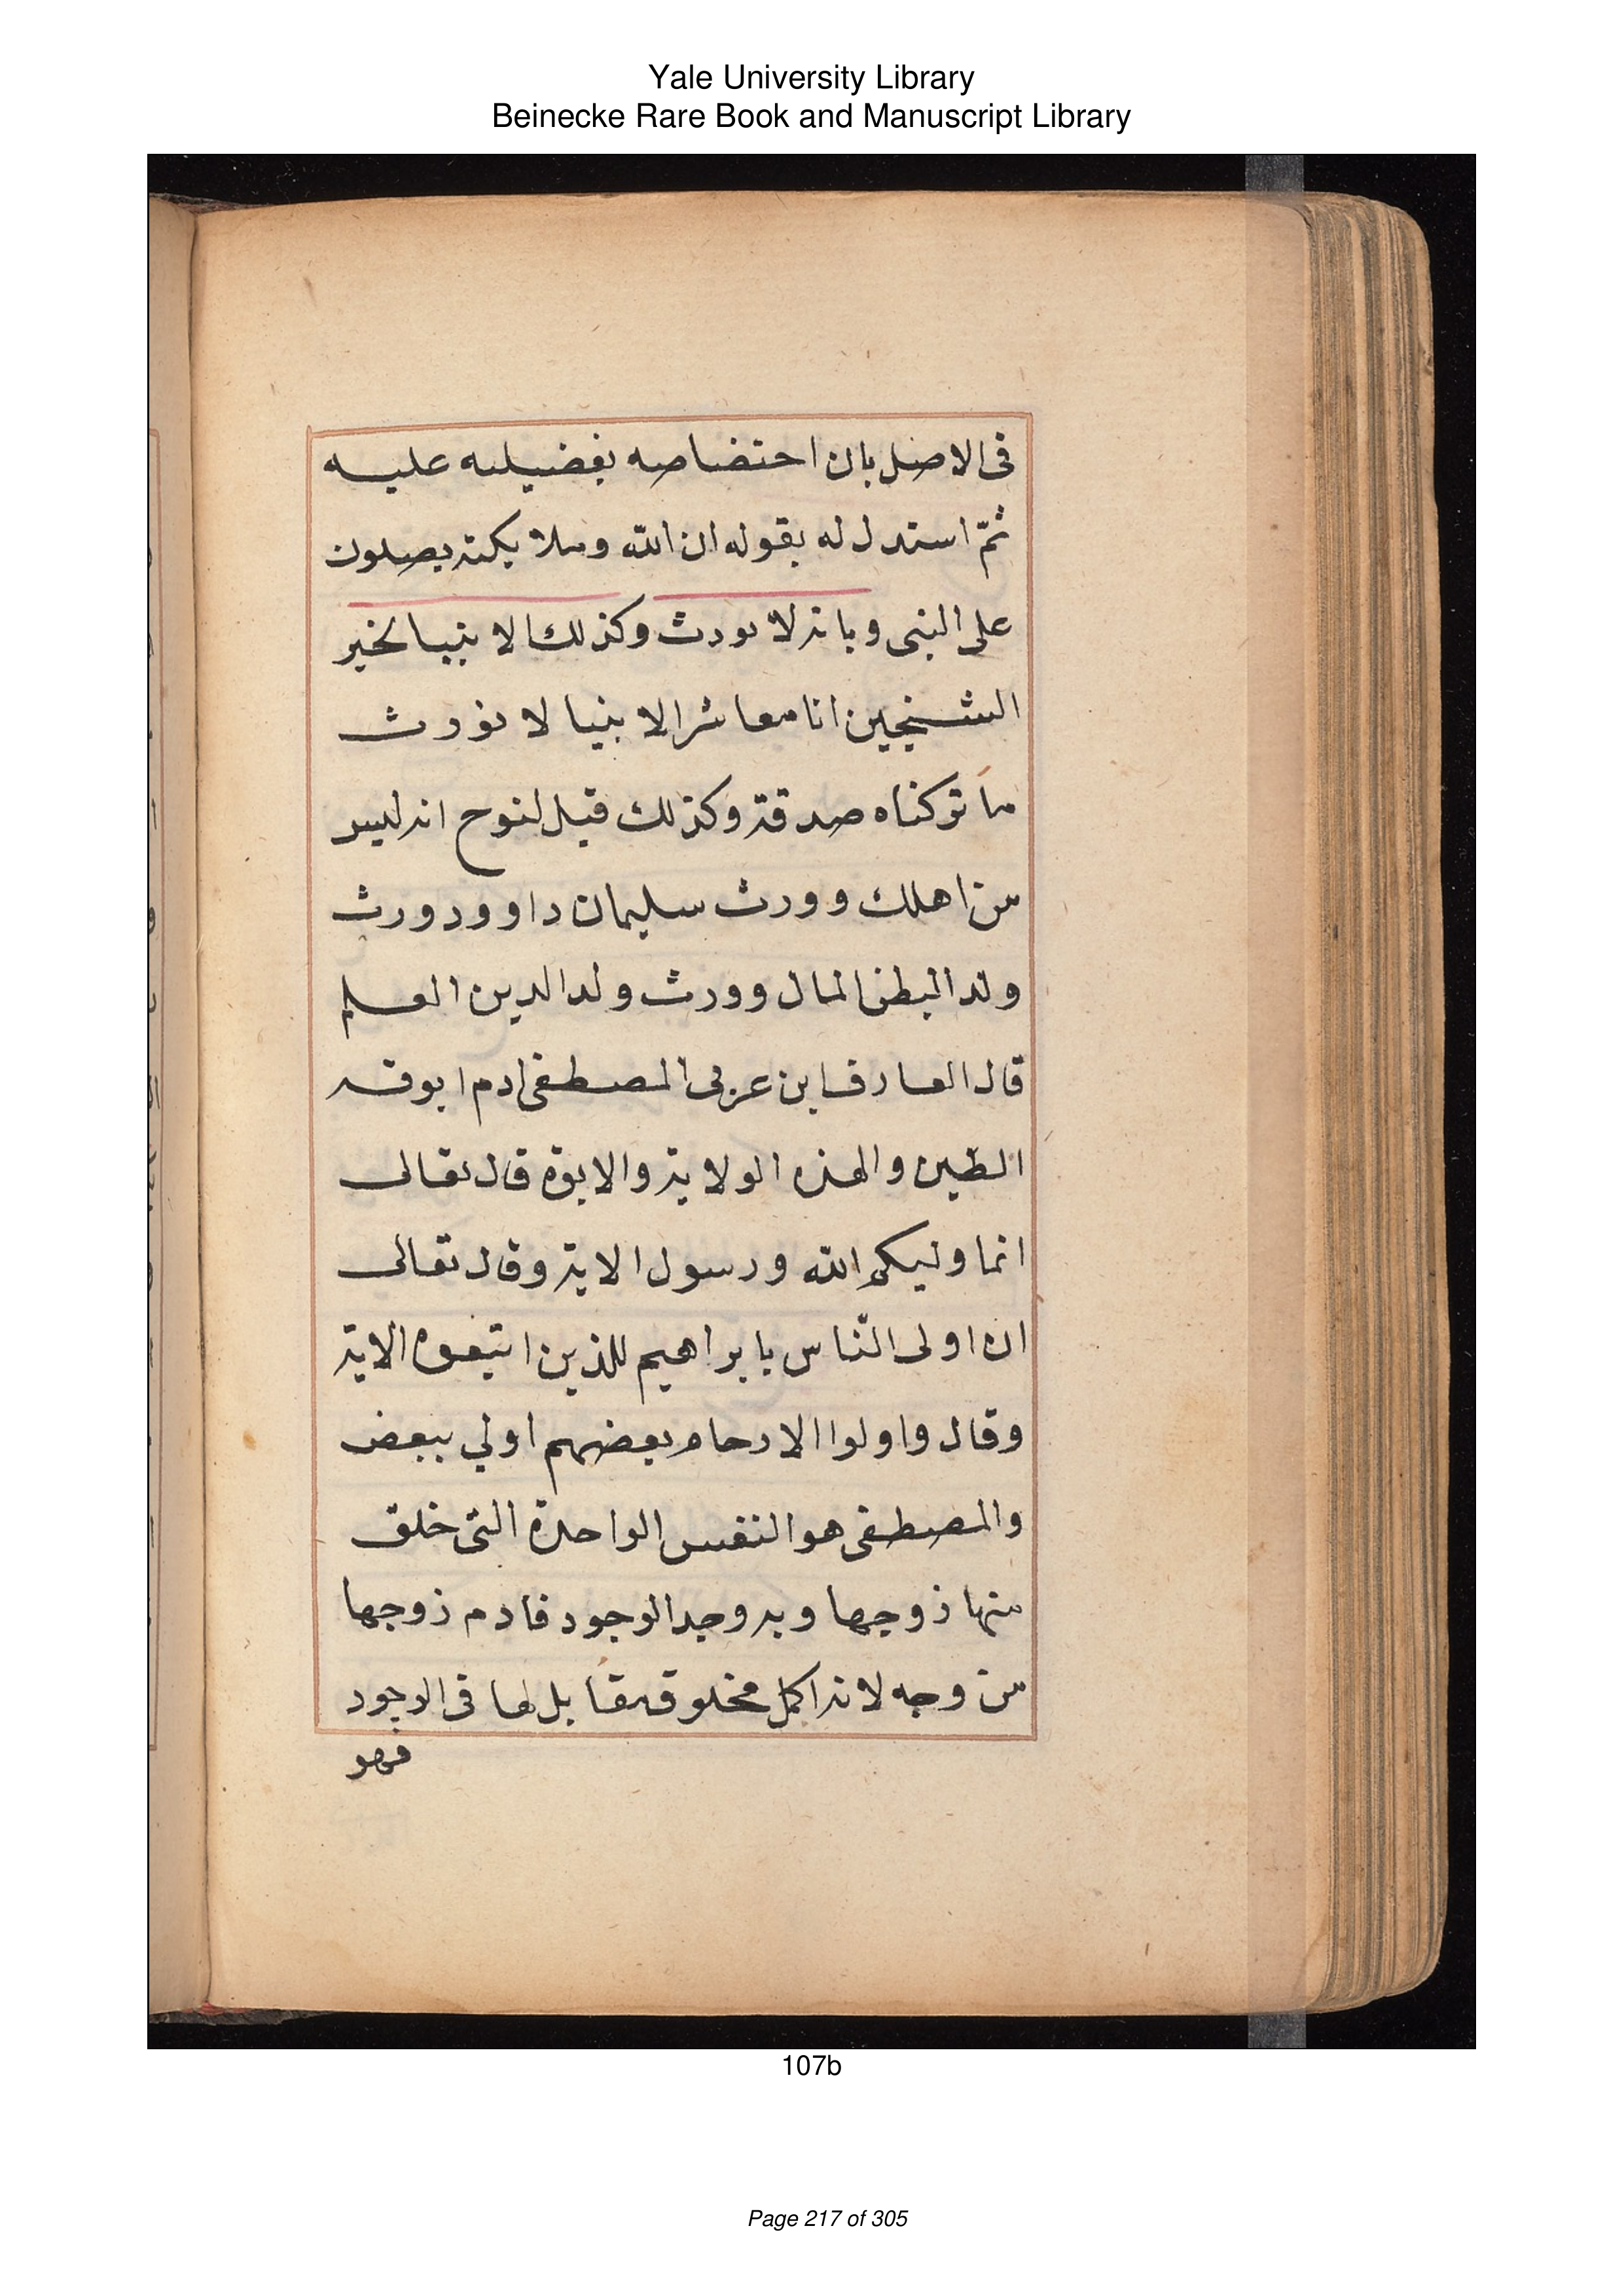 Yale University Library
Beinecke Rare Book and Manuscript Library
فى الاصل بان اختصاصه بفضيلته عليه
ثمّ استدل له بقوله ان الله وملايكته يصلون
على النبى وبانه لا يورث وكذلك الانبيا لخبر
الشيخين انا معاشر الانبيا لا نورث
ما تركناه صدقة وكذلك قيل لنوح انه ليس
من اهلك وورث سليمان داوود وورث
ولد البطن المال وورث ولد الدين العلم
قال العارف ابن عربى المصطفى ادم ابوته
الطين والهذه الولاية والابوة قال تعالى
انما وليكم الله ورسول الاية وقال تعالى
ان اولى النّاس بابراهيم للذين اتبعوه الاية
وقال واولوا الارحام بعضهم اولي ببعض
والمصطفى هو النفس الواحدة التى خلق
منها زوجها وبه وجد الوجود فادم زوجها
من وجه لانه اكمل مخلوق مقابل لها فى الوجود
فهو
107b
Page 217 of 305